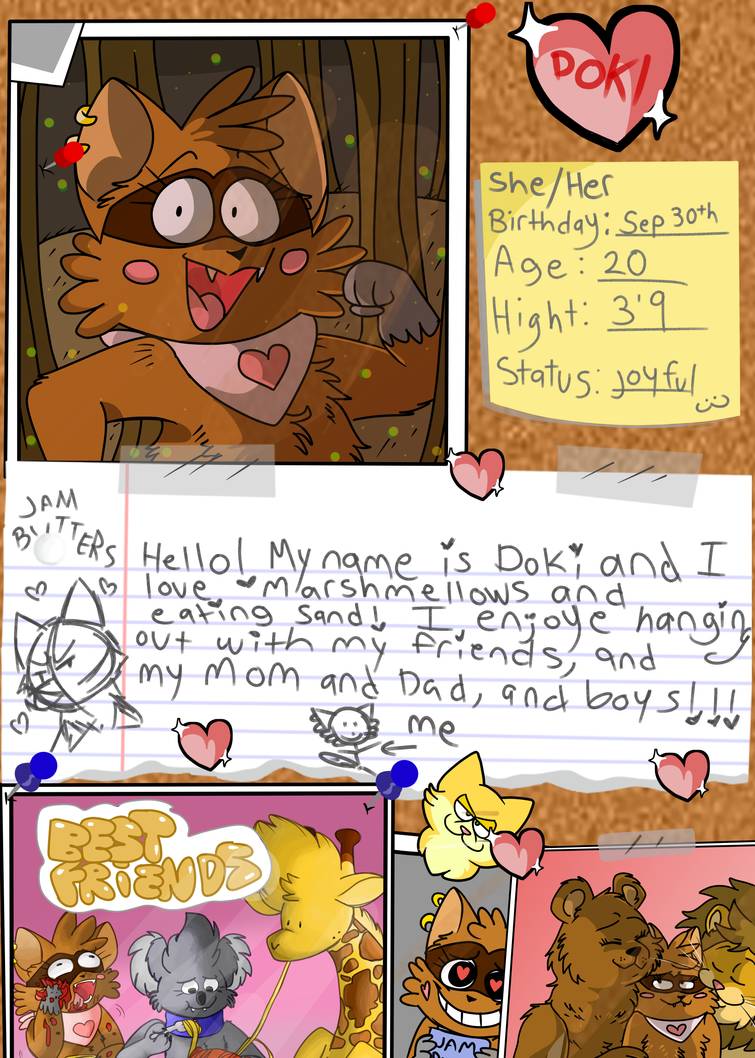 DOKI
She/Her
Birthday: Sep 30th
Age: 20
Hight: 3'9
Status: Joyful
JAM
BUTTERS
Hello! My name is Doki and I
love marshmellows and
eating sand! I enjoye hanging
out with my friends, and
my Mom and Dad, and boys!!!
me
BEST
FRIENDS
JAM